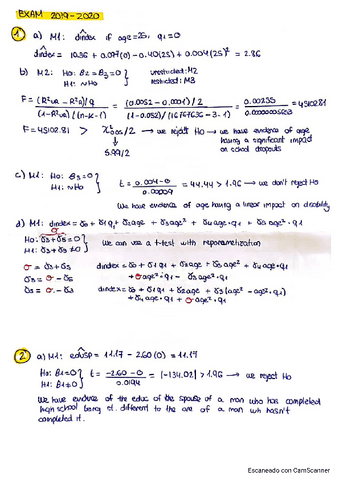 EXAM 2019-2020
1 a) M1: dindex if age=25, q1=0
dindex = 10.36 + 0.077(0) - 0.40(25) + 0.004(25)² = 2.86
b) M2: H0: B2=B3=0 unrestricted: M2
H1: no H0 restricted: M3
F = (R²ur - R²r)/q / (1-R²ur)/(n-k-1) = (0.0052 - 0.0001)/2 / = 0.00255 / = 45102.81
F = 45102.81 > 5.99/2 → we reject H0 → we have evidence of age
having a significant impact
on school dropouts
c) M1: H0: B3=0
H1: no H0 t = 0.004-0 / 0.00009 = 44.44 > 1.96 → we don't reject H0
We have evidence of age having a linear impact on disability
d) M1: dindex = δ0 + δ1q1 + δ2age + δ3age² + δ4age·q1 + δ5age²·q1
H0: δ3+δ5=0
H1: δ3+δ5≠0 We can use a t-test with reparametrization
σ = δ3+δ5 dindex = δ0 + δ1q1 + δ2age + δ3age² + δ4age·q1
δ5 = σ - δ3 + σage²·q1 - δ3age²·q1
dindex = δ0 + δ1q1 + δ2age + δ3(age² - age²·q1)
+ δ4age·q1 + σage²·q1
2 a) M1: edusp = 11.17 - 2.60(0) = 11.17
H0: B1=0
H1: B1≠0 t = -2.60-0 / 0.0194 = |-134.02| > 1.96 → we reject H0
We have evidence of the educ of the spouse of a man who has completed
high school being st. different to the one of a man who hasn't
completed it.
Escaneado con CamScanner